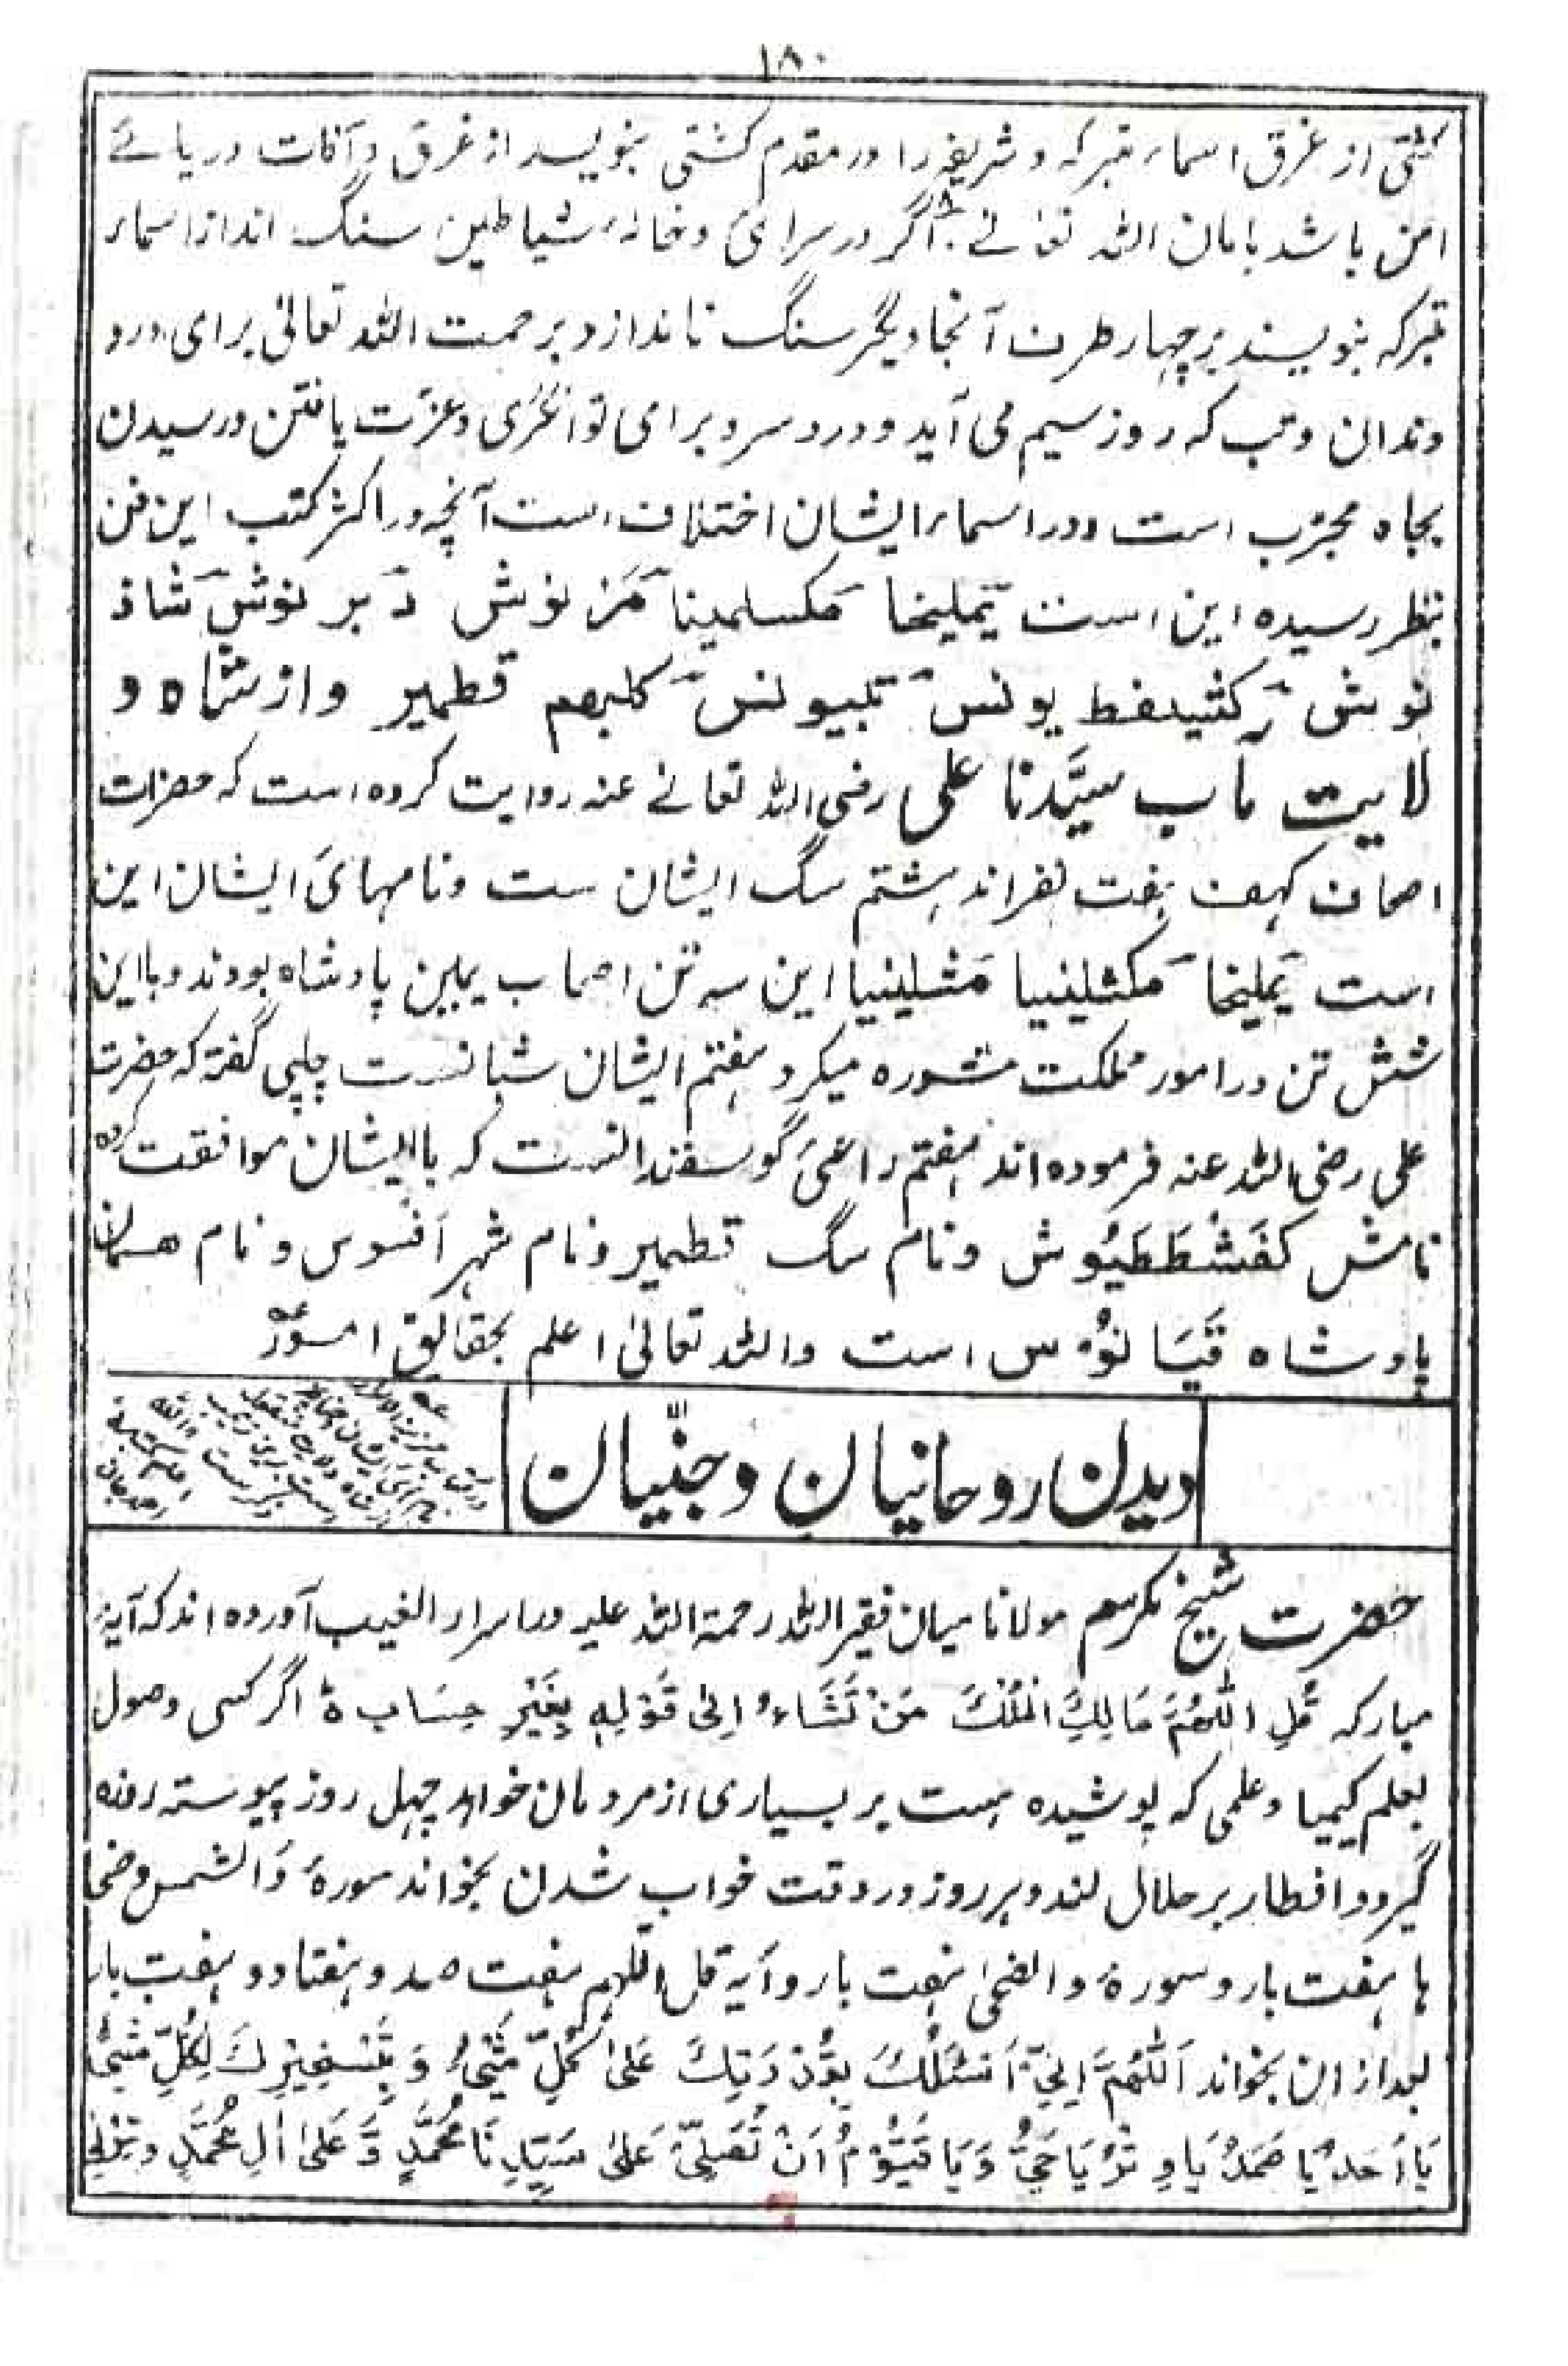 ۱۸۰
کشتی از غرق اسماء متبرکه و شریفه را در مقدم کشتی بنویسد از غرق و آفات دریائے
امن باشد بامان اللہ تعالے ۸ اگر در سرای و خانۂ شیاطین سنگ اندازد اسماء
متبرکه بنویسند بر چهار طرف آنجا دیگر سنگ نا اندازد برحمت اللہ تعالیٰ برای درد
دندان و تب که روز سیم می آید و درد سر و برای توانگری و عزّت یافتن و رسیدن
بجاه مجرّب است و در اسماء ایشان اختلاف است آنچه در اکثر کتب این فن
بنظر رسیده این است یَملیخا مَکسلمینا مَرنوش دَبرنوش شاذ
نوش کلبهم قطمیر و از شاه و
لایت مآب سیّدنا علی رضی اللہ تعالے عنه روایت کرده است که حضرات
اصحاف کهف هفت نفراند هشتم سگ ایشان ست و نامهائ ایشان این
است یَملیخا مَکثلینیا مَثلینیا این سه تن اصحاب یمین پادشاه بودند و با این
شش تن در امور مملکت مشوره میکرد هفتم ایشان شبانست چلپی گفته که حضرت
علی رضی اللہ عنه فرموده اند هفتم راعیٔ گوسفندانست که با ایشان موافقت کرده
نامش کَفَشْطَطَیُوش و نام سگ قطمیر و نام شهر اَفسوس و نام همان
پادشاه است واللہ تعالیٰ اعلم بحقائق امورہ
دیدن روحانیان و جنّیان
حضرت شیخ مکرم مولانا میان فقیر اللہ رحمة اللہ علیه در اسرار الغیب آورده اند که آیۂ
مبارکه قُلِ اللّٰهُمَّ مَالِكَ الْمُلْكِ مَنْ تَشَاءُ اِلیٰ قَوْلِهٖ بِغَیْرِ حِسَاب ۵ اگر کسی وصول
بعلم کیمیا و علمی که پوشیده هست بر بسیاری از مردمان خواهد چهل روز پیوسته روزه
گیرد و افطار بر حلال کند و هر روز در وقت خواب شدن بخواند سورۂ وَالشمس وضحا
ها هفت بار و سورۂ والضحیٰ هفت بار و آیۂ قل اللهم هفت صد و هفتاد و هفت بار
بعد از ان بخواند اَللّٰهُمَّ اِنِّیْ اَسْئَلُكَ بِقُدْرَتِكَ عَلیٰ کُلِّ شَیْءٍ وَ بِتَسْخِیْرِكَ لِکُلِّ شَیْءٍ
یَا اَحَدُ یَا صَمَدُ یَا وِتْرُ یَا حَیُّ وَ یَا قَیُّوْمُ اَنْ تُصَلِّیَ عَلیٰ سَیِّدِنَا مُحَمَّدٍ وَّ عَلیٰ اٰلِ مُحَمَّدٍ